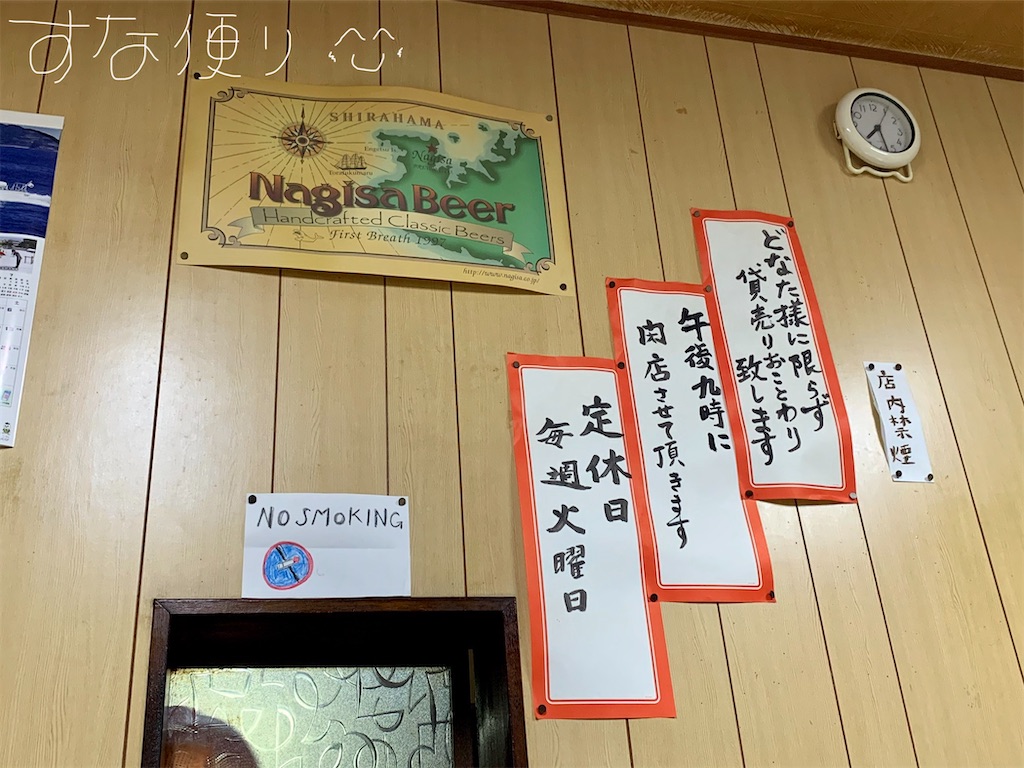 すな便り
SHIRAHAMA
Nagisa
Nagisa Beer
Handcrafted Classic Beers
First Breath 1997
http://www.nagisa.co.jp/
どなた様に限らず
貸売りおことわり
致します
午後九時に
閉店させて頂きます
定休日
毎週火曜日
店内禁煙
NO SMOKING